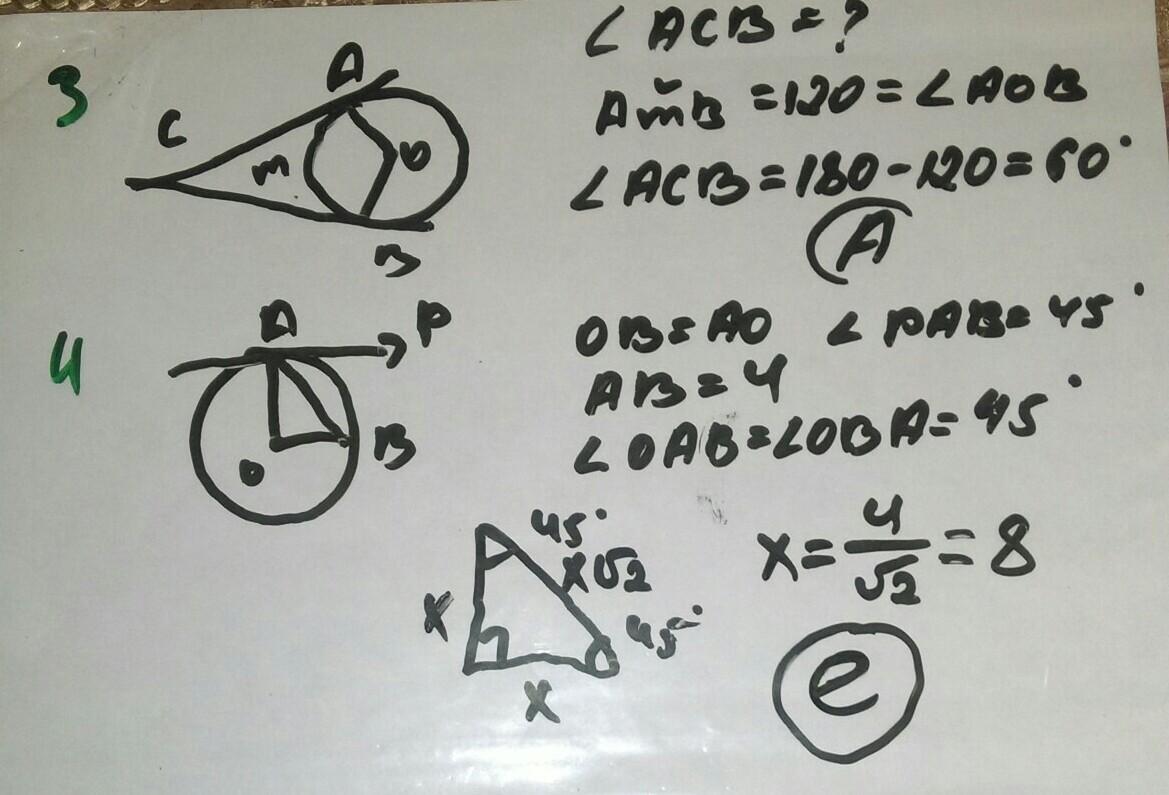 3
∠ACB=?
A
C
m
O
B
AmB=120=∠AOB
∠ACB=180-120=60°
A
4
A
P
O
B
OB=AO ∠PAB=45°
AB=4
∠OAB=∠OBA=45°
45°
x√2
x
45°
x
x=4/√2=8
e